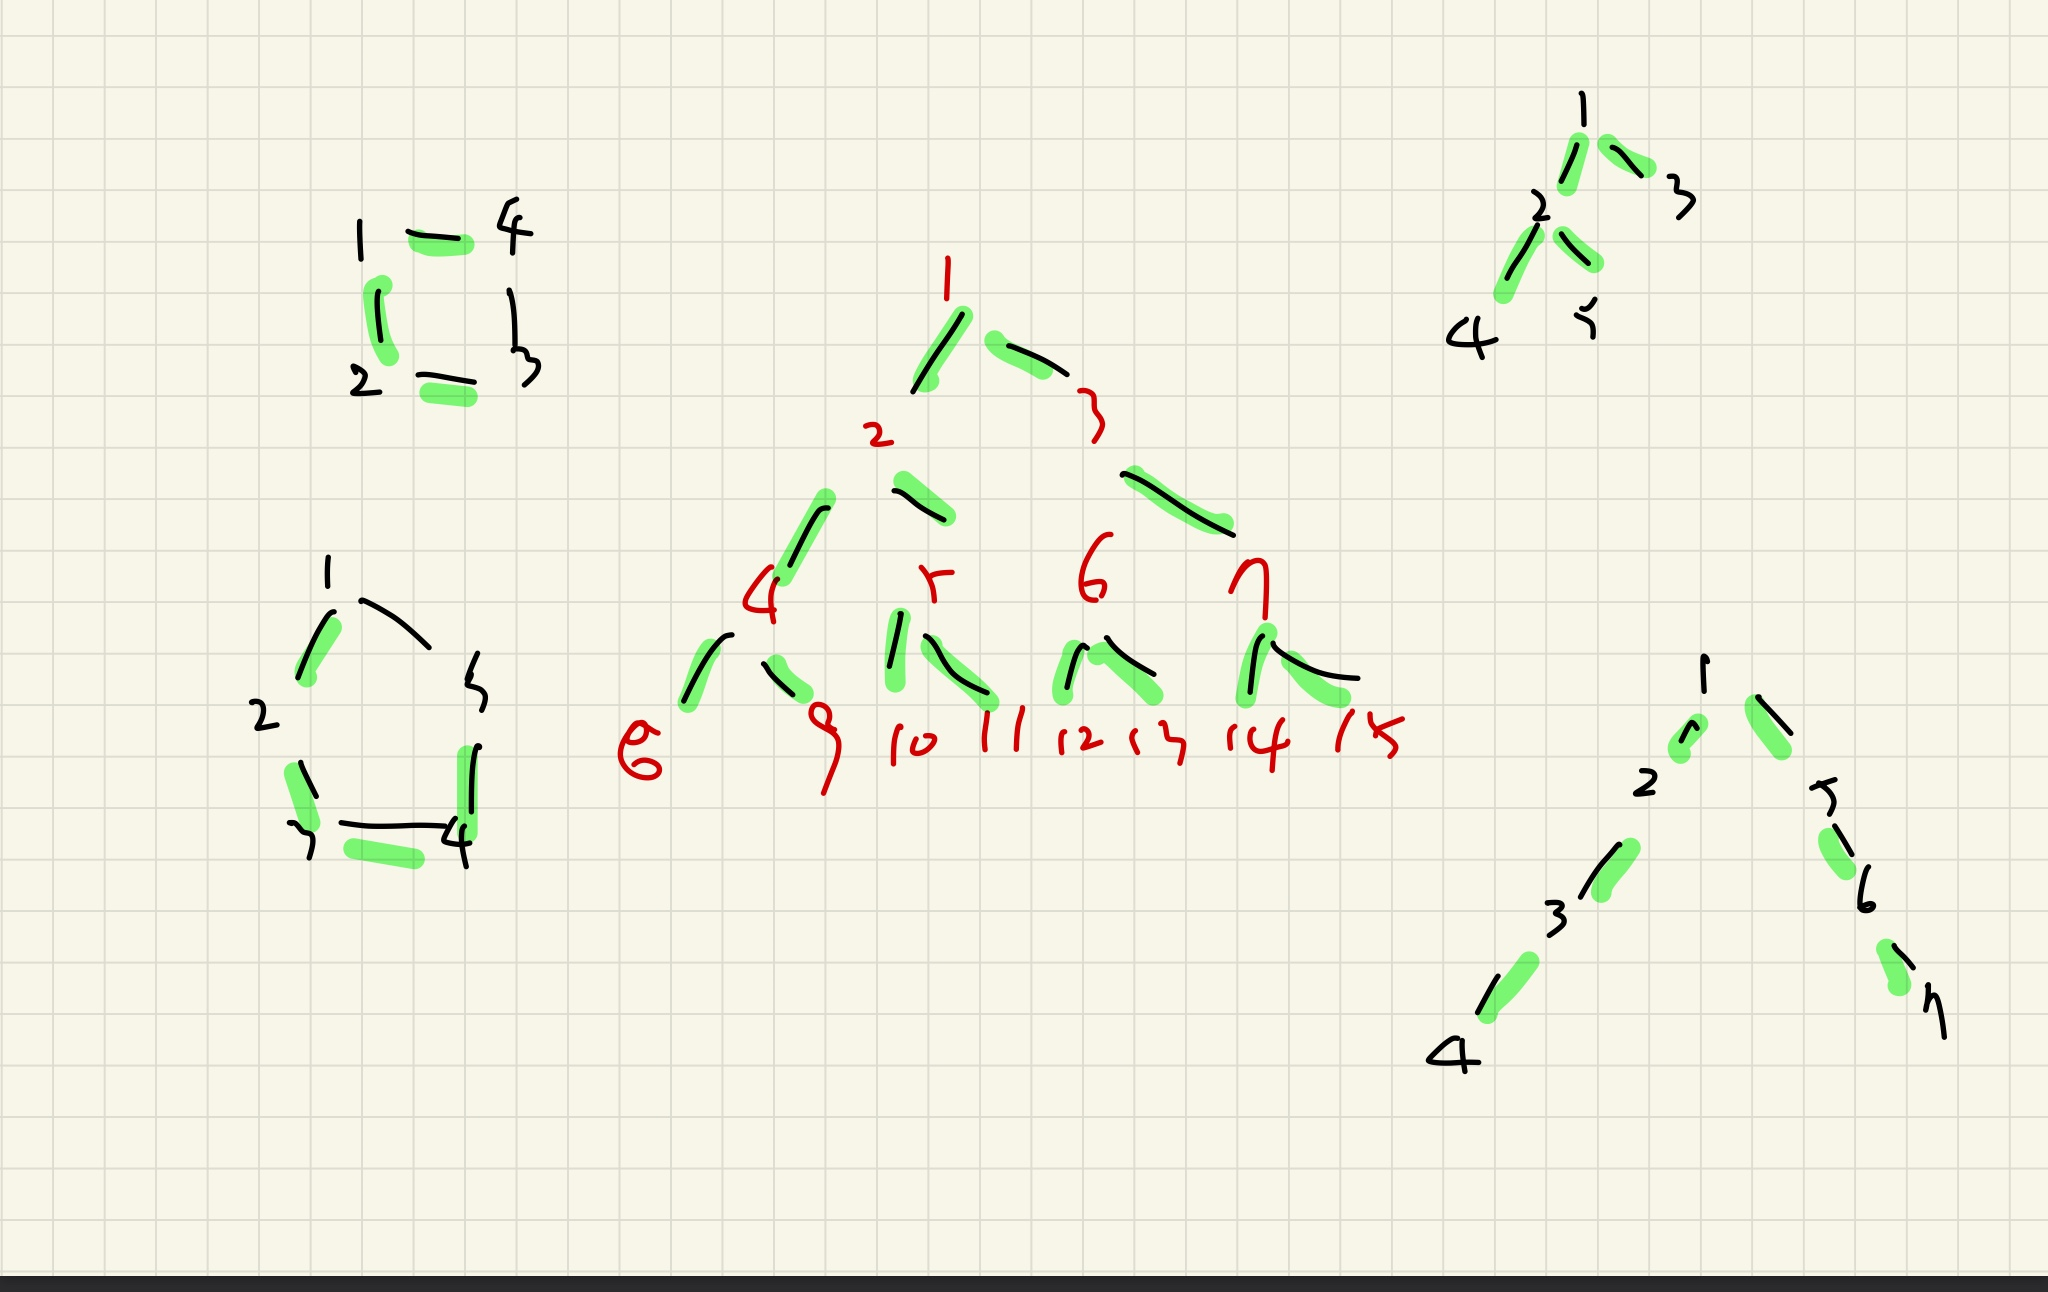 1 4
2 3
1
2 5
3 4
1
2 3
4 5 6 7
8 9 10 11 12 13 14 15
1
2 3
4 5
1
2 5
3 6
4 7